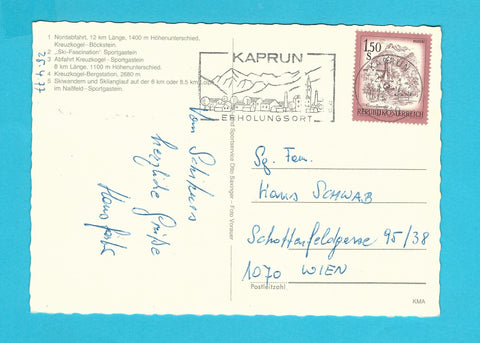 1 Nordabfahrt, 12 km Länge, 1400 m Höhenunterschied,
Kreuzkogel - Böckstein.
2 „Ski-Faszination“ Sportgastein
3 Abfahrt Kreuzkogel - Sportgastein
8 km Länge, 1100 m Höhenunterschied.
4 Kreuzkogel-Bergstation, 2680 m
5 Skiwandern und Skilanglauf auf der 6 km oder 8,5 km
im Naßfeld - Sportgastein.
Vom Schikurs
herzliche Grüße
KAPRUN
ERHOLUNGSORT
1.50
S
REPUBLIK ÖSTERREICH
Sg. Fam.
Hans SCHWAB
Schottenfeldgasse 95/38
1070 WIEN
Postleitzahl
KMA